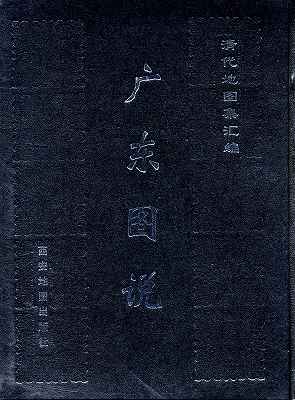 清代地图集汇编
广东图说
西安地图出版社